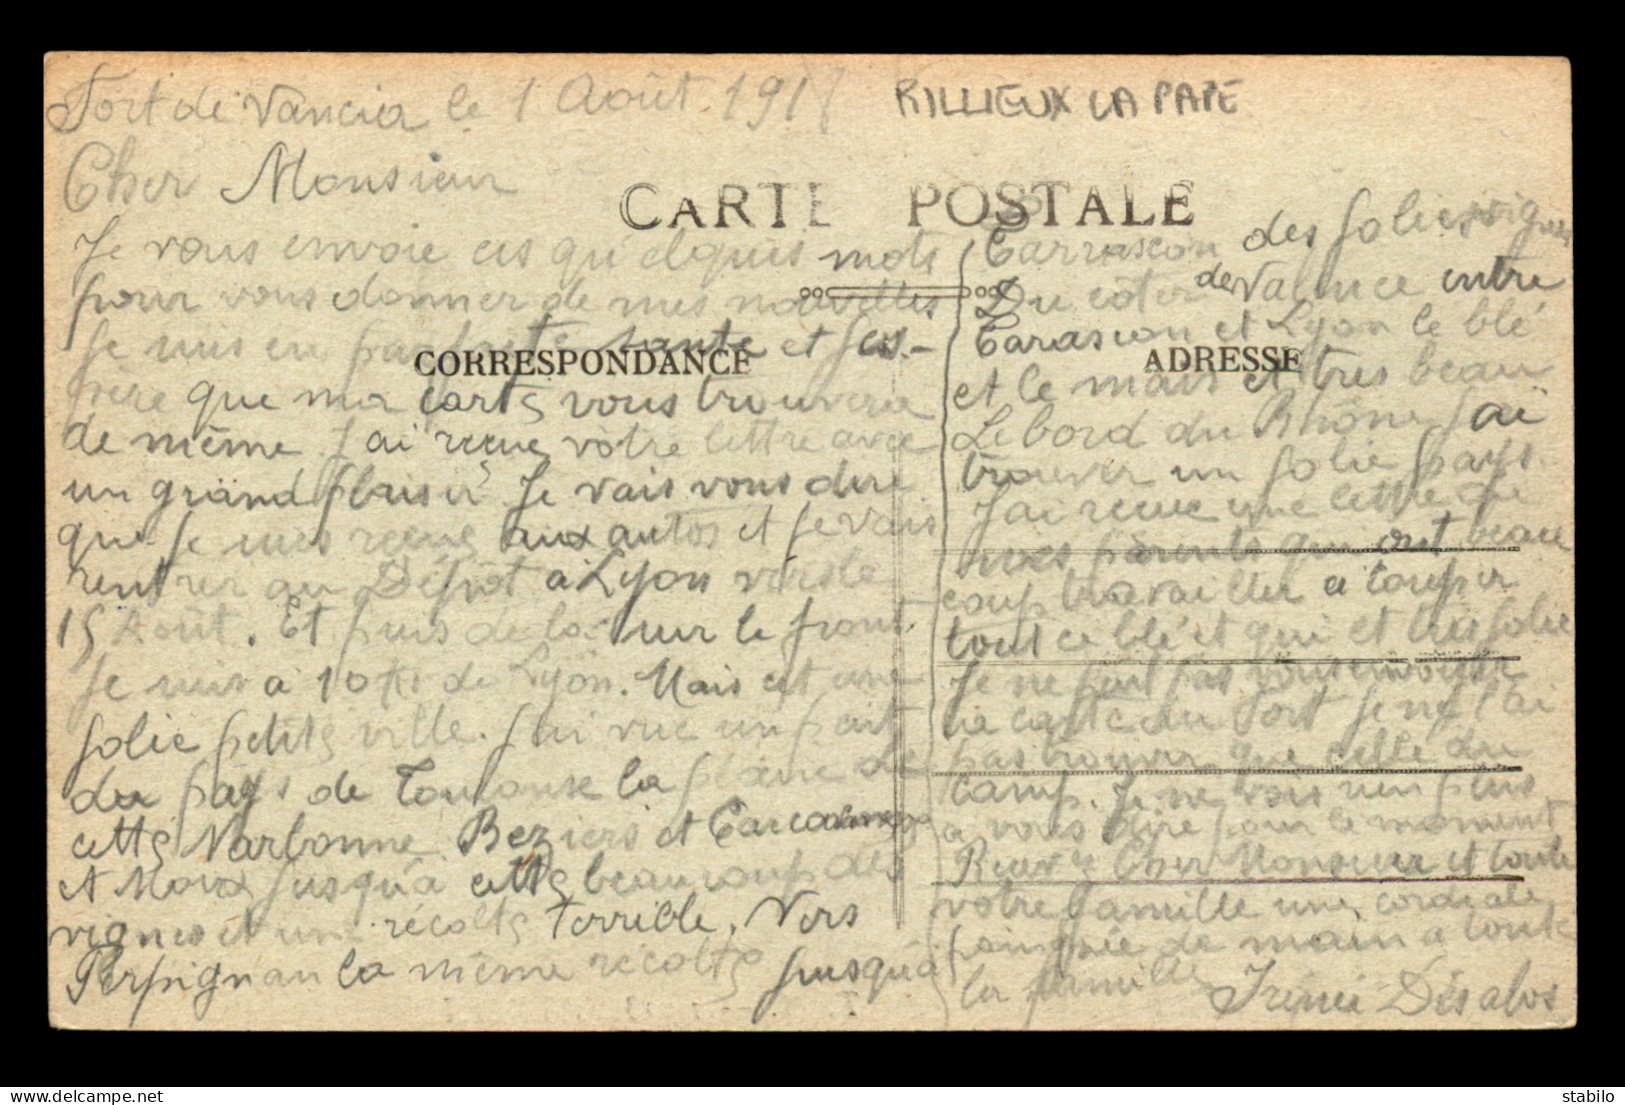 Fort de Vancia le 1 Août 191
RILLIEUX LA PAPE
Cher Monsieur
CARTE POSTALE
Je vous envoie ces qu'elques mots
pour vous donner de mes nouvelles
Je suis en parfaite sante et j'es-
CORRESPONDANCE
père que ma carte vous trouvera
de même J'ai reçue vôtre lettre avec
un grand plaisir Je vais vous dire
que Je suis reçue aux autos et Je vais
rentrer au Dépôt a Lyon vers le
15 Août. Et puis de la sur le front.
Je suis a 10 K de Lyon. Mais cet une
jolie petite ville. J'ai vue un peut
du pays de Toulouse la plaine de
cette Narbonne Beziers et Carcassonne
et jusqu'a cette beaucoup des
vignes et une récolte terrible. Vers
Perpignan la même récolte jusqu'a
Tarrascon des jolies vignes
Du côter de Valence entre
Tarascon et Lyon le blé
ADRESSE
et le mais et tres beau
Le bord du Rhône J'ai
trouver un jolie pays.
J'ai recue une lettre de
mes parents qui ont beau
coup travailler a couper
tout ce blé et qui et tres jolie
Je ne peut pas vous envoyer
la carte du Fort Je ne l'ai
pas trouver que celle du
camp. Je ne vois rien plus
a vous dire pour le moment
Recevez Cher Monsieur et toute
votre famille une cordiale
poingnée de main a toute
la famille Irénée Désalos
stabilo